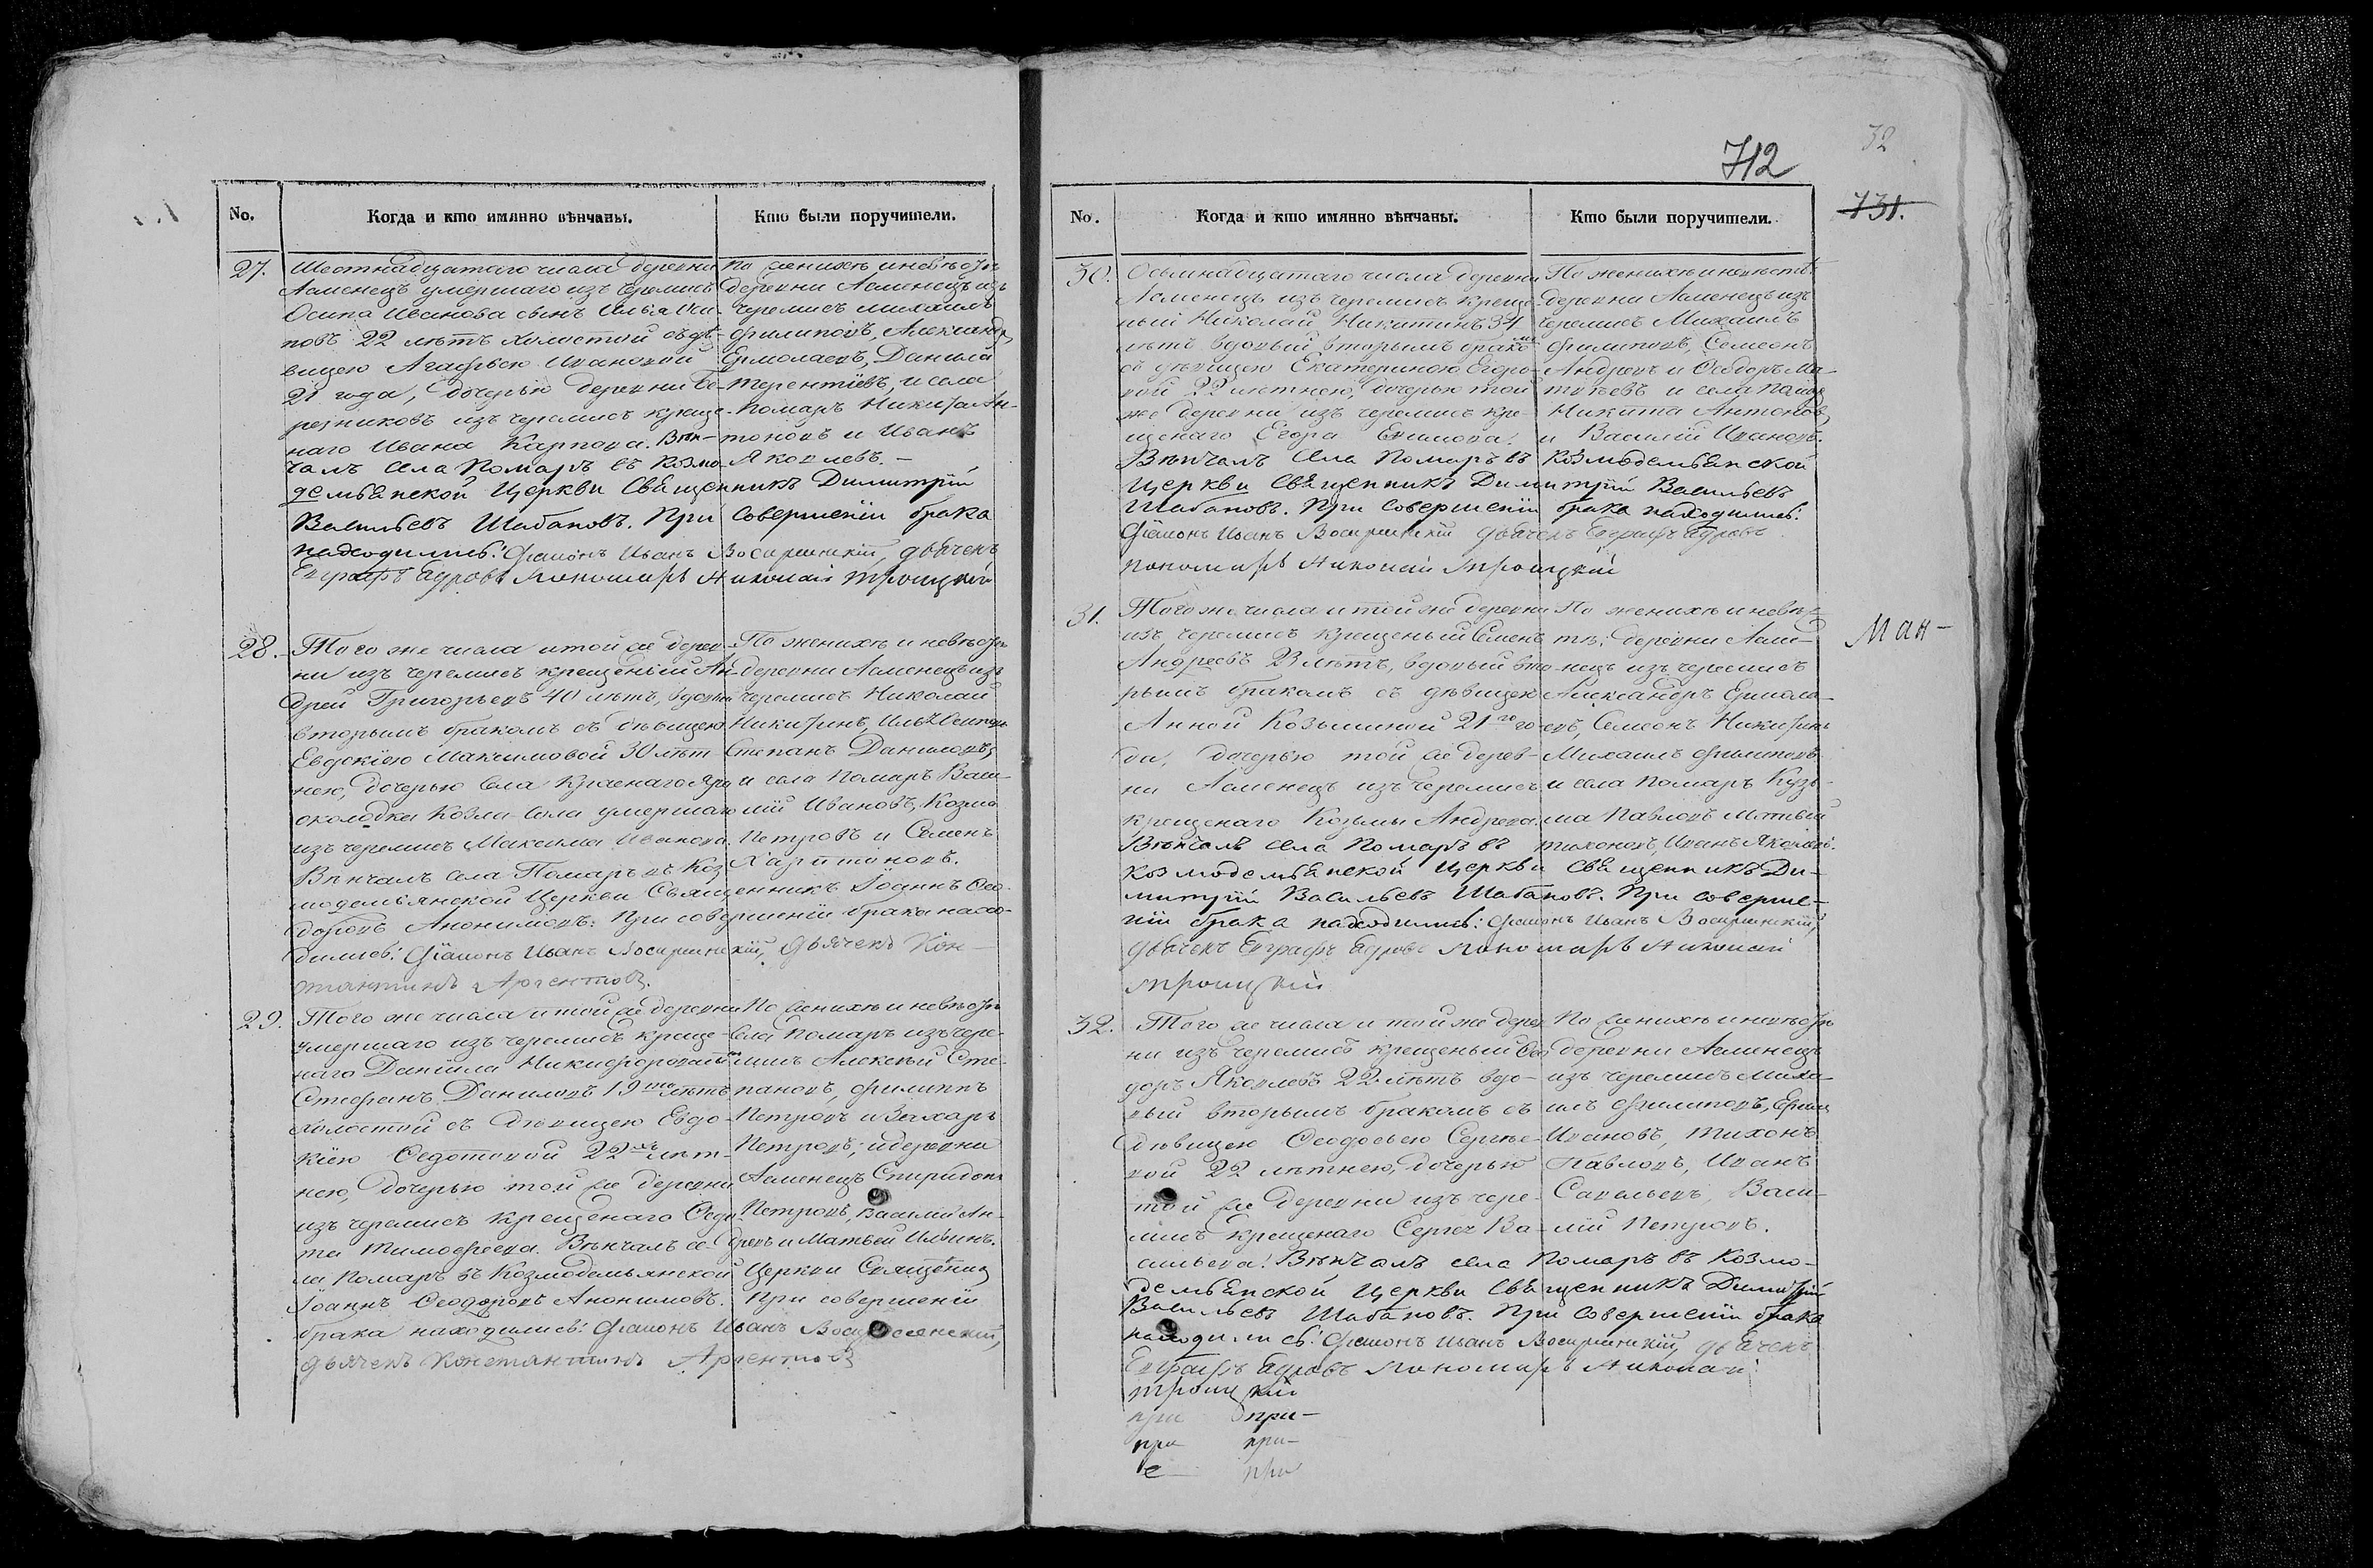 No.
Когда и кто имянно вѣнчаны.
Кто были поручители.
27.
Шестнадцатаго числа деревни
Ааменецъ умершаго изъ черемисъ
Осипа Иванова сынъ Илья Оси-
повъ 22 лѣтъ холостой съ дѣ-
вицею Агафьею Ивановой
21 года, дочерью деревни Бе-
резниковъ изъ черемисъ креще-
наго Ивана Карпова. Вѣн-
чалъ села Помаръ въ Козмо-
демьянской Церкви Священникъ Димитрій
Васильевъ Шабановъ. При совершеніи брака
находились: Діаконъ Иванъ Воскресенскій, дьячекъ
Евграфъ Бдровъ пономарь Николай Троицкій
По женихѣ и невѣстѣ
деревни Ааменецъ изъ
черемисъ Михаилъ
Филиповъ, Александръ
Ермолаевъ, Данила
Терентіевъ, и села
Помаръ Никита Ан-
тоновъ и Иванъ
Яковлевъ.
28.
Того же числа и той же дерев-
ни изъ черемисъ крещеный Ан-
дрей Григорьевъ 40 лѣтъ, вдовый
вторымъ бракомъ съ дѣвицею
Евдокіею Максимовой 30 лѣт-
нею, дочерью села Краснаго Яра
околодка Козла-Сола умершаго
изъ черемисъ Максима Иванова.
Вѣнчалъ села Помаръ въ Коз-
модемьянской Церкви Священникъ Іоаннъ Ѳео-
доровъ Анонимовъ: При совершеніи брака нахо-
дились: Діаконъ Иванъ Воскресенскій, Дьячекъ Кон-
стантинъ Аргентовъ.
По женихѣ и невѣстѣ
деревни Ааменецъ изъ
черемисъ Николай
Никитинъ, Илья Осиповъ
Степанъ Даниловъ,
и села Помаръ Васи-
лій Ивановъ, Козма
Петровъ и Семенъ
Харитоновъ.
29.
Того же числа и той же деревни
умершаго изъ черемисъ креще-
наго Даніила Никифорова сынъ
Стефанъ Даниловъ 19 лѣтъ
холостой съ дѣвицею Евдо-
кіею Ѳедотовой 22 лѣт-
нею, дочерью той же деревни
изъ черемисъ крещенаго Ѳедо-
та Тимофеева. Вѣнчалъ се-
ла Помаръ въ Козмодемьянской Церкви Священникъ
Іоаннъ Ѳеодоровъ Анонимовъ. При совершеніи
брака находились: Діаконъ Иванъ Воскресенскій,
дьячекъ Константинъ Аргентовъ
По женихѣ и невѣстѣ
села Помаръ изъ чере-
мисъ Алексѣй Сте-
пановъ, Филиппъ
Петровъ и Захаръ
Петровъ; и деревни
Ааменецъ Спиридонъ
Петровъ, Василій Ан-
дреевъ и Матвей Ильинъ.
712
32
731.
No.
Когда и кто имянно вѣнчаны.
Кто были поручители.
30.
Осьмнадцатаго числа деревни
Ааменецъ изъ черемисъ креще-
ный Николай Никитинъ 34
лѣтъ вдовый вторымъ бракомъ
съ дѣвицею Екатериною Егоро-
вой 22 лѣтнею, дочерью той
же деревни изъ черемисъ кре-
щенаго Егора Екимова.
Вѣнчалъ села Помаръ въ Козмодемьянской
Церкви Священникъ Димитрій Васильевъ
Шабановъ. При совершеніи брака находились:
Діаконъ Иванъ Воскресенскій дьячекъ Евграфъ Бдровъ
пономарь Николай Троицкій
По женихѣ и невѣстѣ
деревни Ааменецъ изъ
черемисъ Михаилъ
Филиповъ, Семеонъ
Андреевъ и Ѳеодоръ Ма-
твѣевъ и села Помаръ
Никита Антоновъ,
и Василій Ивановъ.
31.
Того же числа и той же деревни
изъ черемисъ крещеный Семенъ
Андреевъ 23 лѣтъ, вдовый вто-
рымъ бракомъ съ дѣвицею
Анной Козьминой 21го го-
да, дочерью той же дерев-
ни Ааменецъ изъ черемисъ
крещенаго Козьмы Андреева.
Вѣнчалъ села Помаръ въ
Козмодемьянской Церкви Священникъ Ди-
митрій Васильевъ Шабановъ. При соверше-
ніи брака находились: Діаконъ Иванъ Воскресенскій,
дьячекъ Евграфъ Бдровъ пономарь Николай
Троицкій
По женихѣ и невѣс-
тѣ: деревни Ааме-
нецъ изъ черемисъ
Александръ Ермола-
евъ, Семеонъ Никитинъ
Михаилъ Филиповъ
и села Помаръ Кузь-
ма Павловъ Матвей
Тихоновъ, Иванъ Яковлевъ.
Ман-
32.
Того же числа и той же дерев-
ни изъ черемисъ крещеный Ѳео-
доръ Яковлевъ 22 лѣтъ вдо-
вый вторымъ бракомъ съ
дѣвицею Ѳеодосьею Сергѣе-
вой 22 лѣтнею, дочерью
той же деревни изъ чере-
мисъ крещенаго Сергѣя Ва-
сильева. Вѣнчалъ села Помаръ въ Козмо-
демьянской Церкви Священникъ Димитрій
Васильевъ Шабановъ. При совершеніи брака
находились: Діаконъ Иванъ Воскресенскій, дьячекъ
Евграфъ Бдровъ пономарь Николай
Троицкій
По женихѣ и невѣстѣ
деревни Ааменецъ
изъ черемисъ Миха-
илъ Филиповъ,
Ивановъ, Тихонъ
Павловъ, Иванъ
Савельевъ, Васи-
лій Петровъ.
при при-
при при-
е при